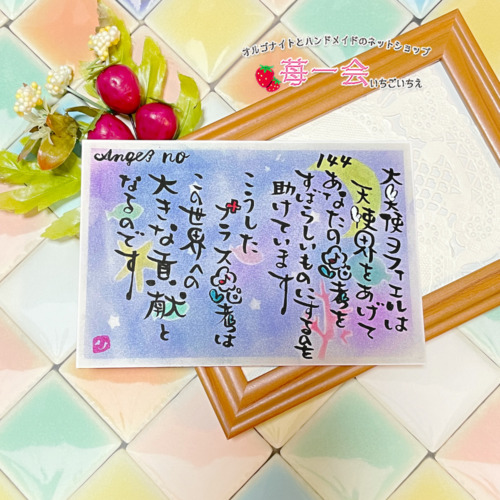 オルゴナイトとハンドメイドのネットショップ
苺一会
いちごいちえ
Angel no
144
大天使ヨフィエルは
天使界をあげて
あなたの思考を
すばらしいものにするのを
助けています
こうした
プラス思考は
この世界への
大きな貢献と
なるのです